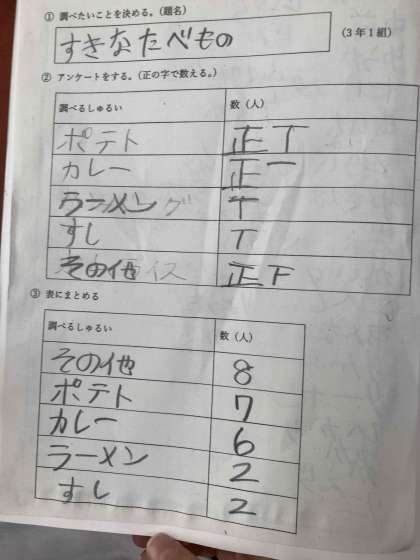 ① 調べたいことを決める。(題名)
すきなたべもの
(3年1組)
② アンケートをする。(正の字で数える。)
調べるしゅるい 数(人)
ポテト 正丅
カレー 正一
ラーメン 丅
すし 丅
その他 正下
③ 表にまとめる
調べるしゅるい 数(人)
その他 8
ポテト 7
カレー 6
ラーメン 2
すし 2